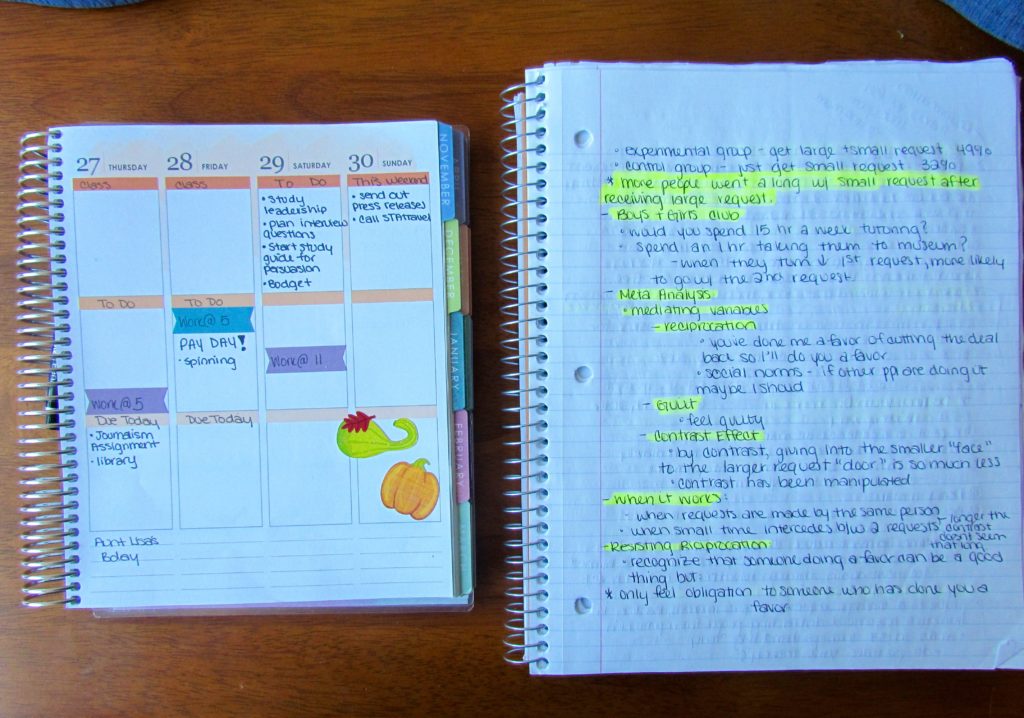 27 THURSDAY
28 FRIDAY
29 SATURDAY
30 SUNDAY
class
class
To Do
This Weekend
• study
leadership
• plan interview
questions
• start study
guide for
persuasion
• Budget
• send out
press releases
• Call STAtravel
To Do
To Do
Work@ 5
PAY DAY!
• spinning
Work@ 11
Work@ 5
Due Today
Due Today
• Journalism
Assignment
• library
Aunt Lisa's
Bday
NOVEMBER
DECEMBER
JANUARY
FEBRUARY
• experimental group - get large + small request 49%
• control group - just get small request 32%
* more people went a long w/ small request after
receiving large request.
- Boys + Girls Club
• would you spend 15 hr a week tutoring?
- spend an 1 hr taking them to museum?
- when they turn ↓ 1st request, more likely
to go w/ the 2nd request
- Meta Analysis
• mediating variables
- reciprocation
• you've done me a favor of cutting the deal
back so I'll do you a favor
• social norms - if other ppl are doing it
maybe I should
- Guilt
• feel guilty
- Contrast Effect
• by contrast, giving into the smaller "face"
to the larger request "door" is so much less
• contrast has been manipulated
- when it works:
- when requests are made by the same person
• when small time intercedes b/w 2 requests
+ longer the
contrast
doesn't seem
that long
- Resisting Reciprocation
• recognize that someone doing a favor can be a good
thing but:
* only feel obligation to someone who has done you a
favor